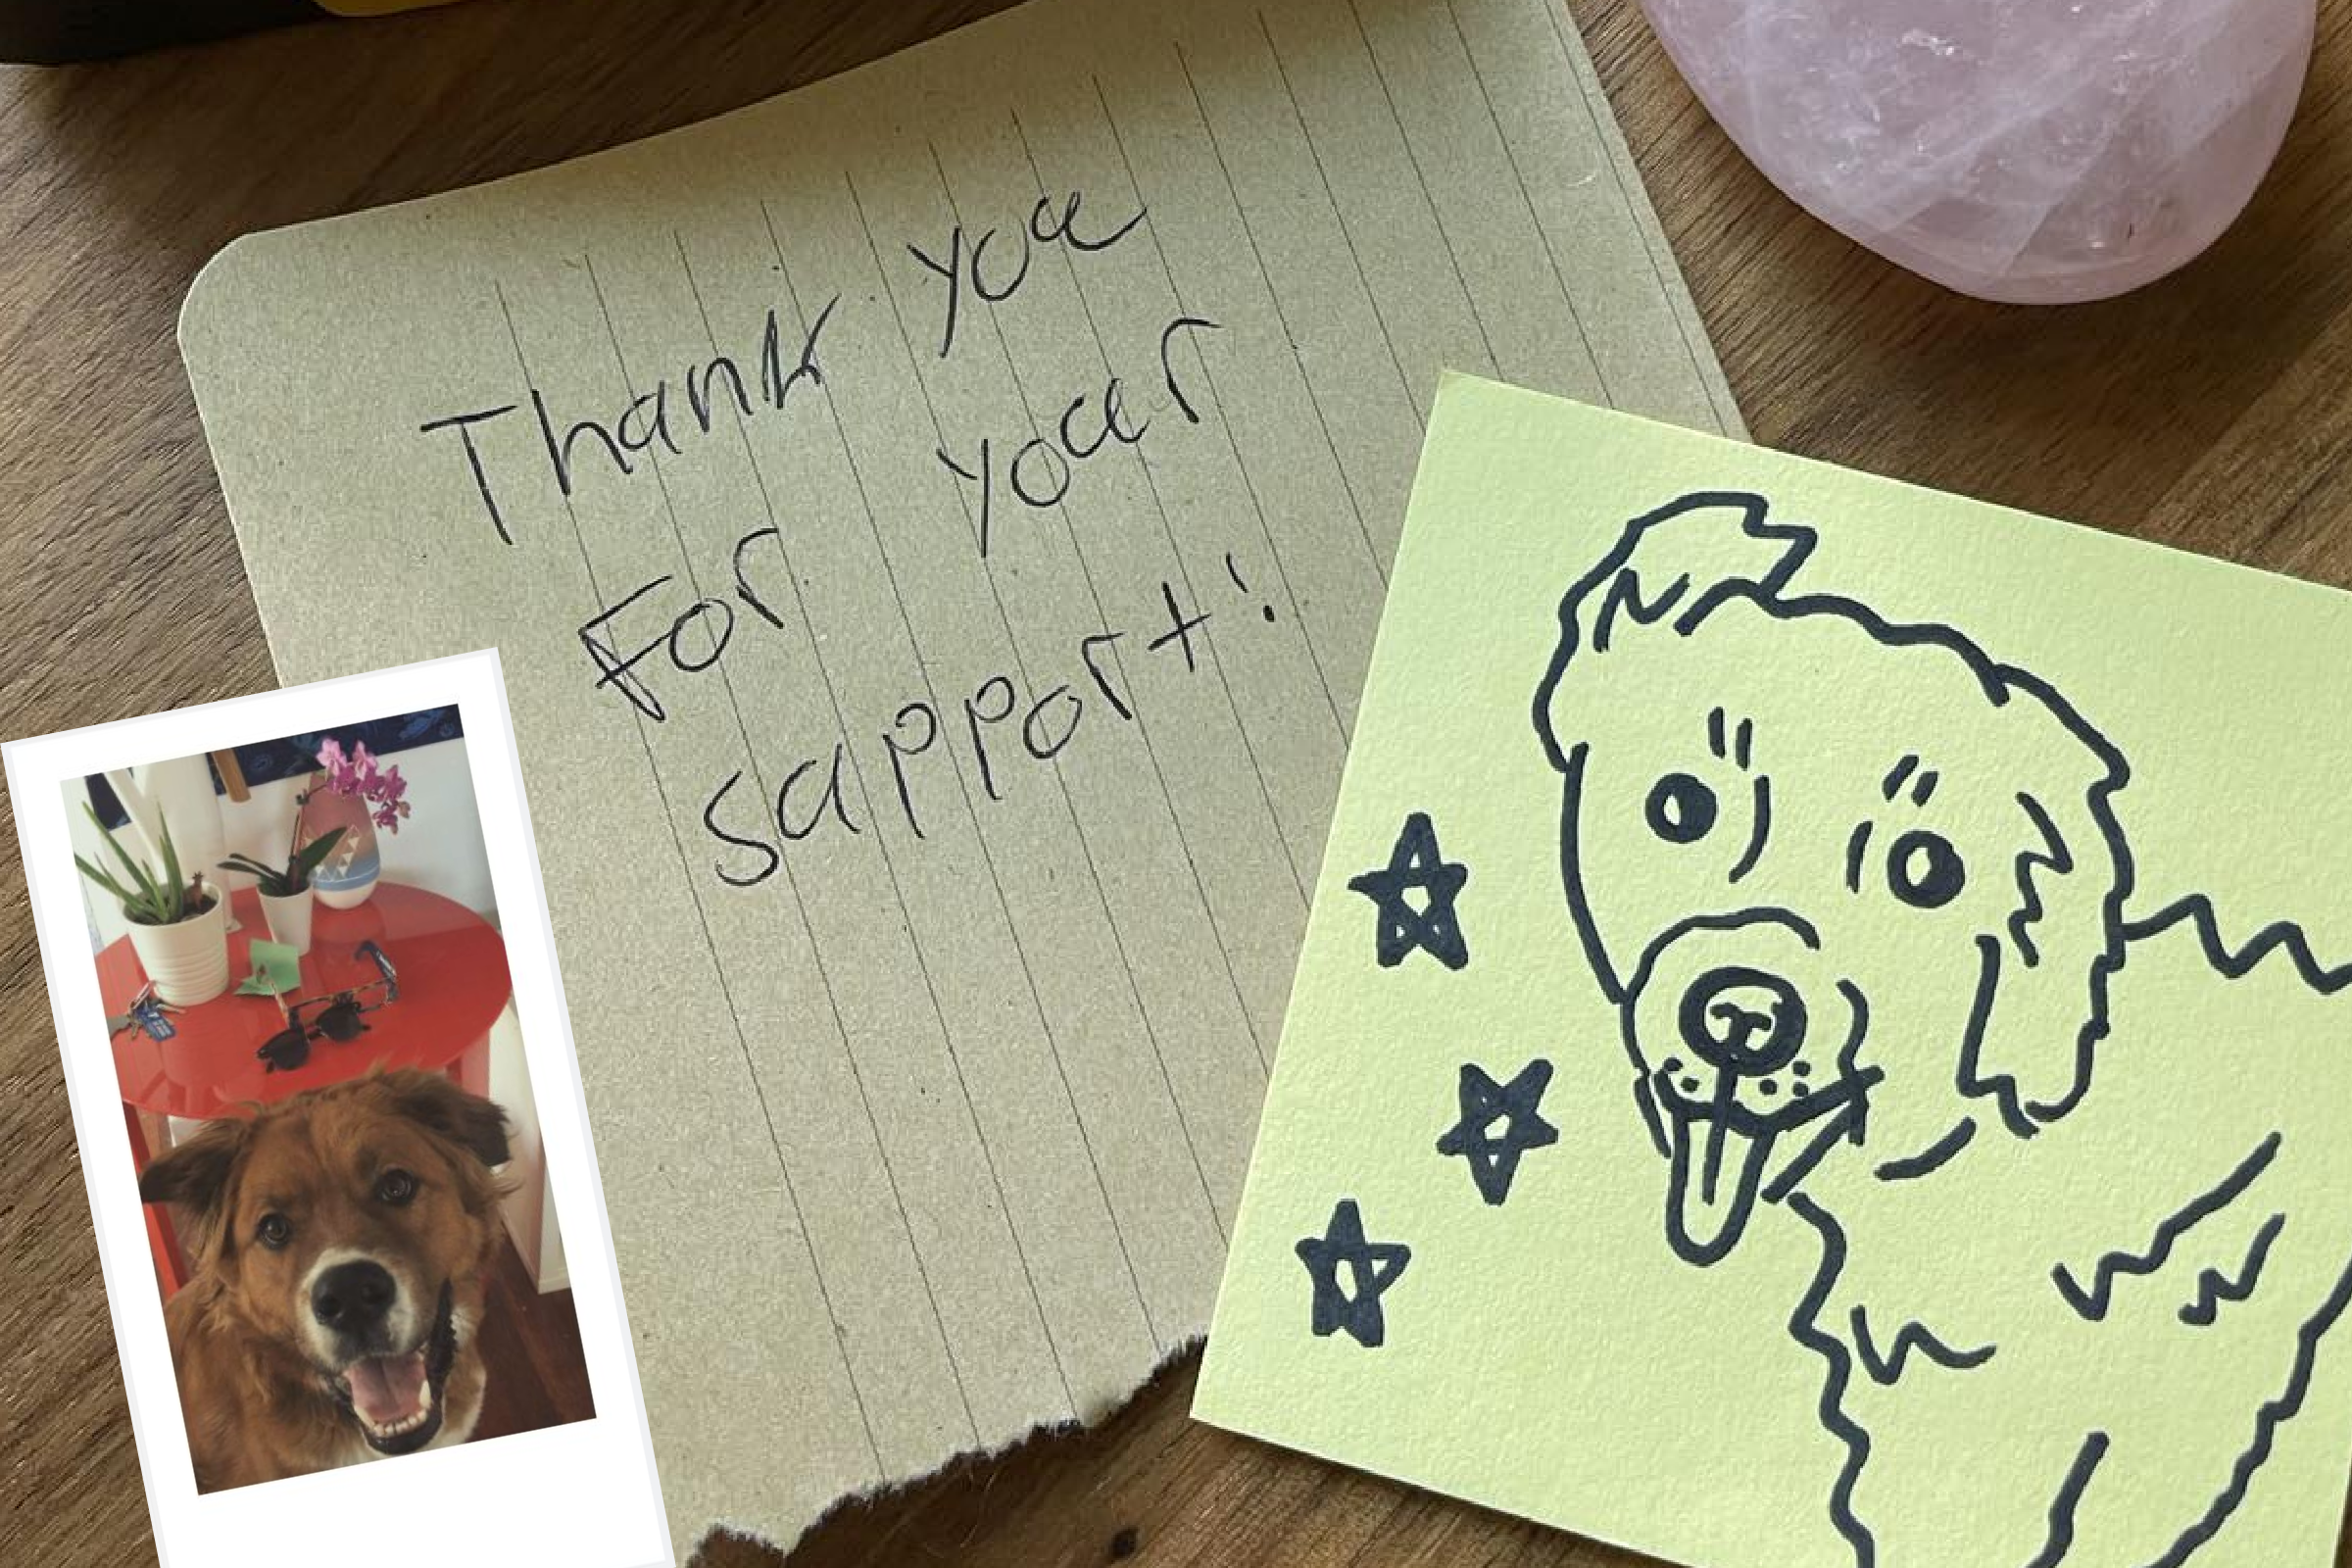 Thank you
For your
support!